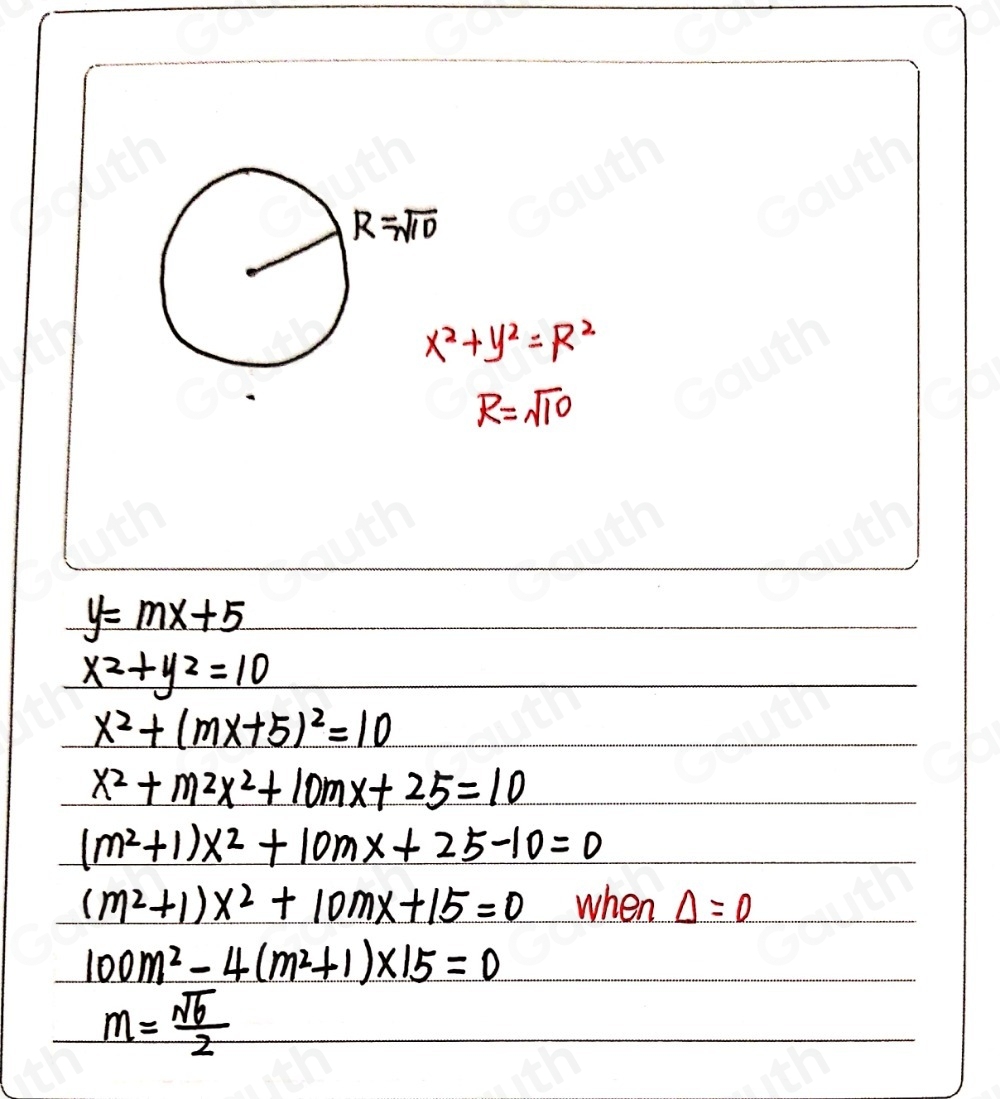 R=√10
x²+y²=R²
R=√10
y=mx+5
x²+y²=10
x²+(mx+5)²=10
x²+m²x²+10mx+25=10
(m²+1)x²+10mx+25-10=0
(m²+1)x²+10mx+15=0 when Δ=0
100m²-4(m²+1)×15=0
m=√6/2
Gauth